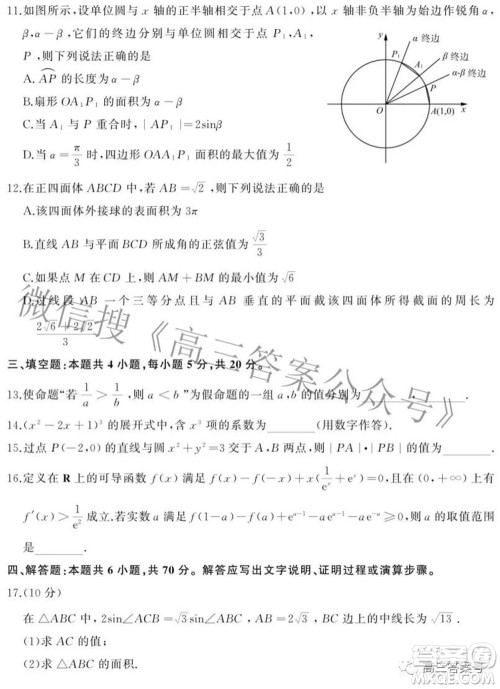 11.如图所示,设单位圆与 x 轴的正半轴相交于点 A(1,0),以 x 轴非负半轴为始边作锐角 α,
β,α-β,它们的终边分别与单位圆相交于点 P₁,A₁,
P,则下列说法正确的是
A. AP 的长度为 α-β
B.扇形 OA₁P₁ 的面积为 α-β
C.当 A₁ 与 P 重合时,|AP₁|=2sinβ
D.当 α=π/3 时,四边形 OAA₁P₁ 面积的最大值为 1/2
y
α 终边
P₁
β 终边
A₁
α-β 终边
P
O
A(1,0)
x
12.在正四面体 ABCD 中,若 AB=√2,则下列说法正确的是
A.该四面体外接球的表面积为 3π
B.直线 AB 与平面 BCD 所成角的正弦值为 √3/3
C.如果点 M 在 CD 上,则 AM+BM 的最小值为 √6
D.过线段 AB 一个三等分点且与 AB 垂直的平面截该四面体所得截面的周长为
(2√6+2√2)/3
三、填空题:本题共 4 小题,每小题 5 分,共 20 分。
13.使命题“若 1/a > 1/b,则 a<b”为假命题的一组 a,b 的值分别为________,________.
14.(x²-2x+1)³ 的展开式中,含 x³ 项的系数为________(用数字作答).
15.过点 P(-2,0)的直线与圆 x²+y²=3 交于 A,B 两点,则|PA|·|PB|的值为________.
16.定义在 R 上的可导函数 f(x)满足 f(x)-f(-x)=x(1/eˣ+eˣ)=0,且在(0,+∞)上有
f′(x)>1/e² 成立.若实数 a 满足 f(1-a)-f(a)+eᵃ⁻¹-aeᵃ⁻¹-ae⁻ᵃ≥0,则 a 的取值范围
是________.
四、解答题:本题共 6 小题,共 70 分。解答应写出文字说明、证明过程或演算步骤。
17.(10 分)
在 △ABC 中,2sin∠ACB=√3,AB=2√3,BC 上的中线长为 √13.
(1)求 AC 的值;
(2)求 △ABC 的面积.
微信搜《高三答案公众号》
高三答案号